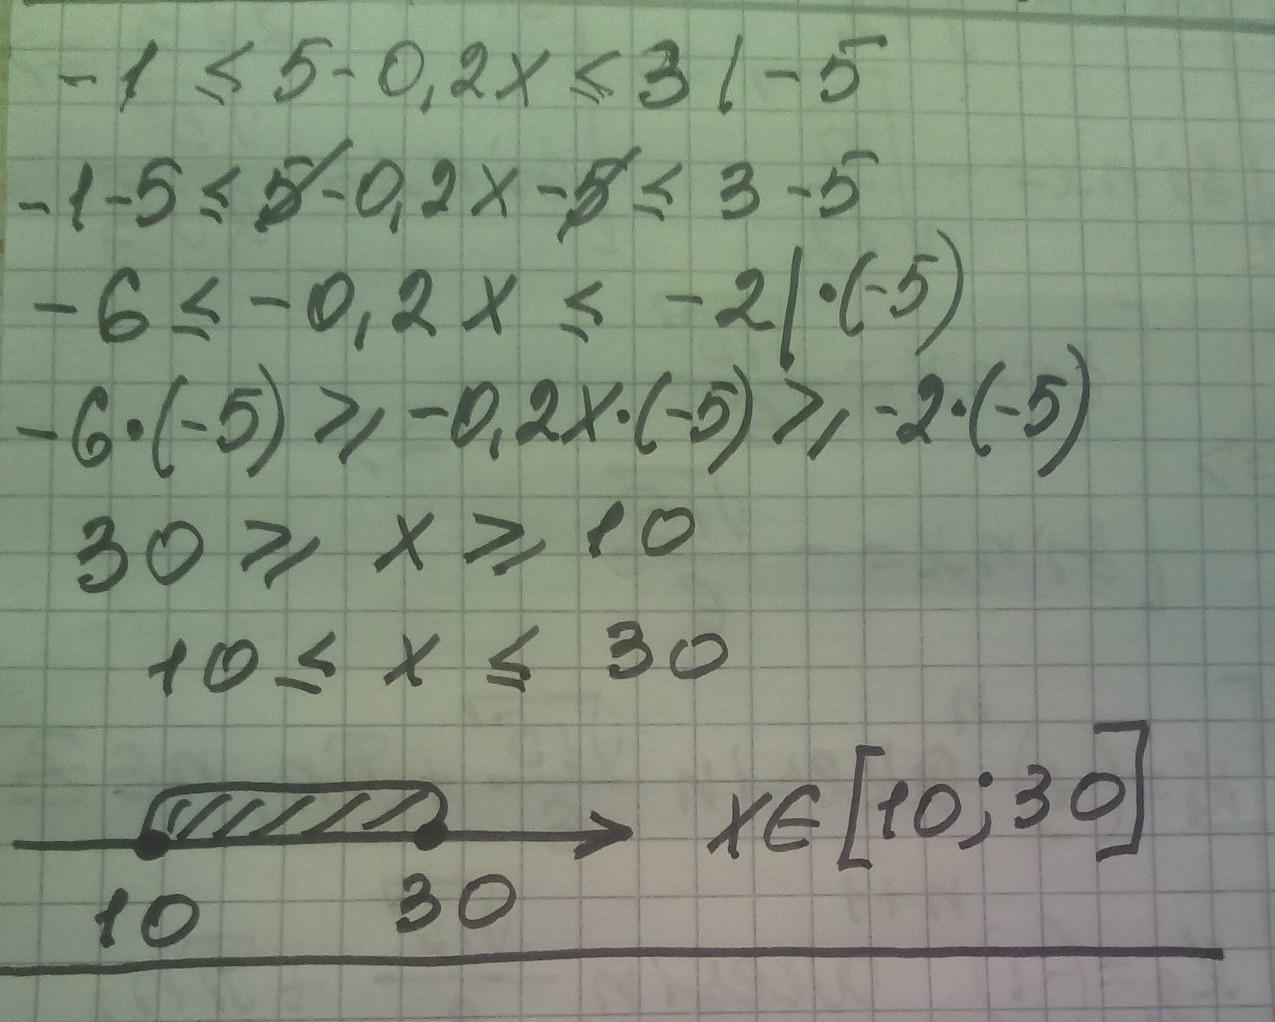 -1 ≤ 5-0,2x ≤ 3 | -5
-1-5 ≤ 5-0,2x-5 ≤ 3-5
-6 ≤ -0,2x ≤ -2 | ·(-5)
-6·(-5) ⩾ -0,2x·(-5) ⩾ -2·(-5)
30 ⩾ x ⩾ 10
10 ≤ x ≤ 30
x∈[10;30]
10 30